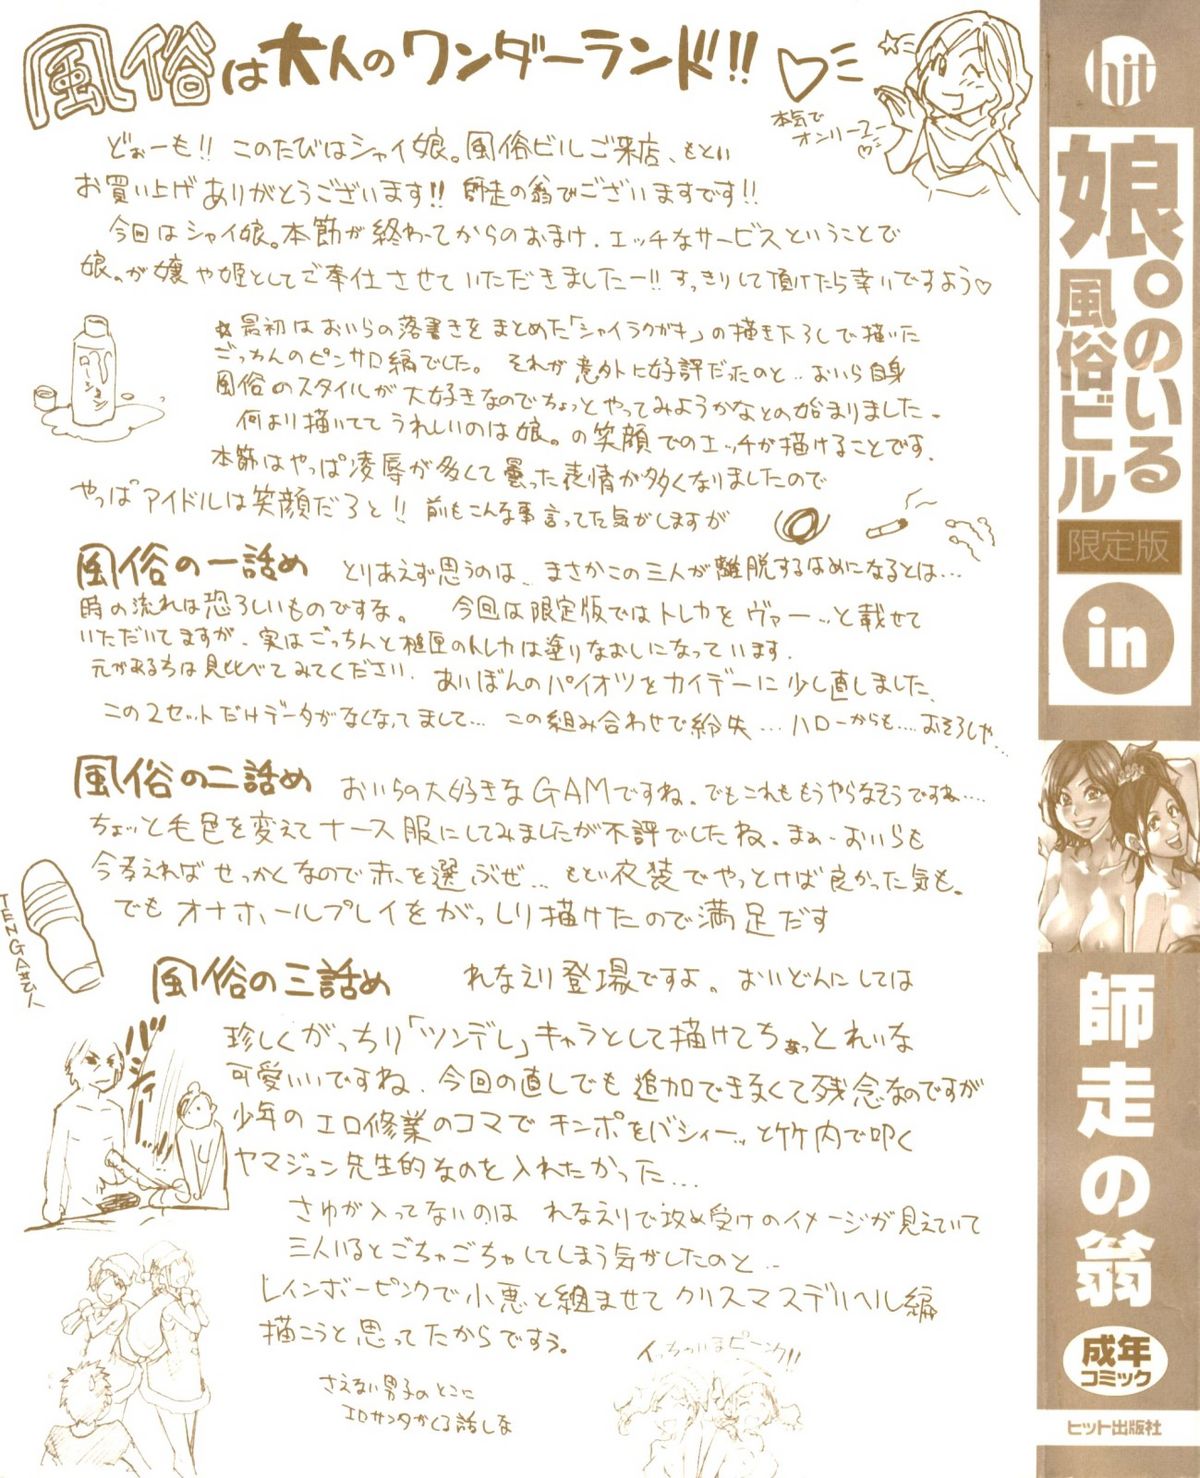 風俗は大人のワンダーランド!!
本気で
オンリー
どぉーも!! このたびはシャイ娘。風俗ビルご来店、もとい
お買い上げありがとうございます!! 師走の翁でございますです!!
今回はシャイ娘。本筋が終わってからのおまけ、エッチなサービスということで
娘。が嬢や姫としてご奉仕させていただきましたー!! すっきりして頂けたら幸いですよう♡
ローション
☆最初はおいらの落書きをまとめた「シャイラクガキ」の描き下ろしで描いた
ごっちんのピンサロ編でした。それが意外に好評だったのと‥おいら自身
風俗のスタイルが大好きなのでちょっとやってみようかなとの始まりました。
何より描いててうれしいのは娘。の笑顔でのエッチが描けることです。
本筋はやっぱ凌辱が多くて曇った表情が多くなりましたので
やっぱアイドルは笑顔だろと!! 前もこんな事言ってた気がしますが
風俗の一話め とりあえず思うのは、まさかこの三人が離脱するはめになるとは…
時の流れは恐ろしいものですな。 今回は限定版ではトレカをヴァーッと載せて
いただいてますが、実はごっちんと のトレカは塗りなおしになっています。
元がある方は見比べてみてください。あいぼんのパイオツをカイデーに少し直しました。
この2セットだけデータがなくなってまして… この組み合わせで紛失… ハローからも…おそろしや…
風俗の二話め おいらの大好きなGAMですね。でもこれももうやらなそうですね…
ちょっと毛色を変えてナース服にしてみましたが不評でしたね。まぁおいらも
今考えればせっかくなので赤を選ぶぜ… 衣装でやっとけば良かった気も。
でもオナホールプレイをがっしり描けたので満足だす
TENGA芸人
風俗の三話め れなえり登場ですよ。おいどんにしては
珍しくがっちり「ツンデレ」キャラとして描けてちょっとれいな
可愛いいですね。今回の直しでも追加できなくて残念なのですが
さゆが入ってないのは れなえりで攻め受けのイメージが見えていて
三人いるとごちゃごちゃしてしまう気がしたのと‥
レインボーピンクで小悪と組ませてクリスマスデリヘル編
描こうと思ってたからですう。
さえない男子のとこに
エロサンタがくる話しな
hit
娘。のいる
風俗ビル
限定版
in
師走の翁
成年
コミック
ヒット出版社